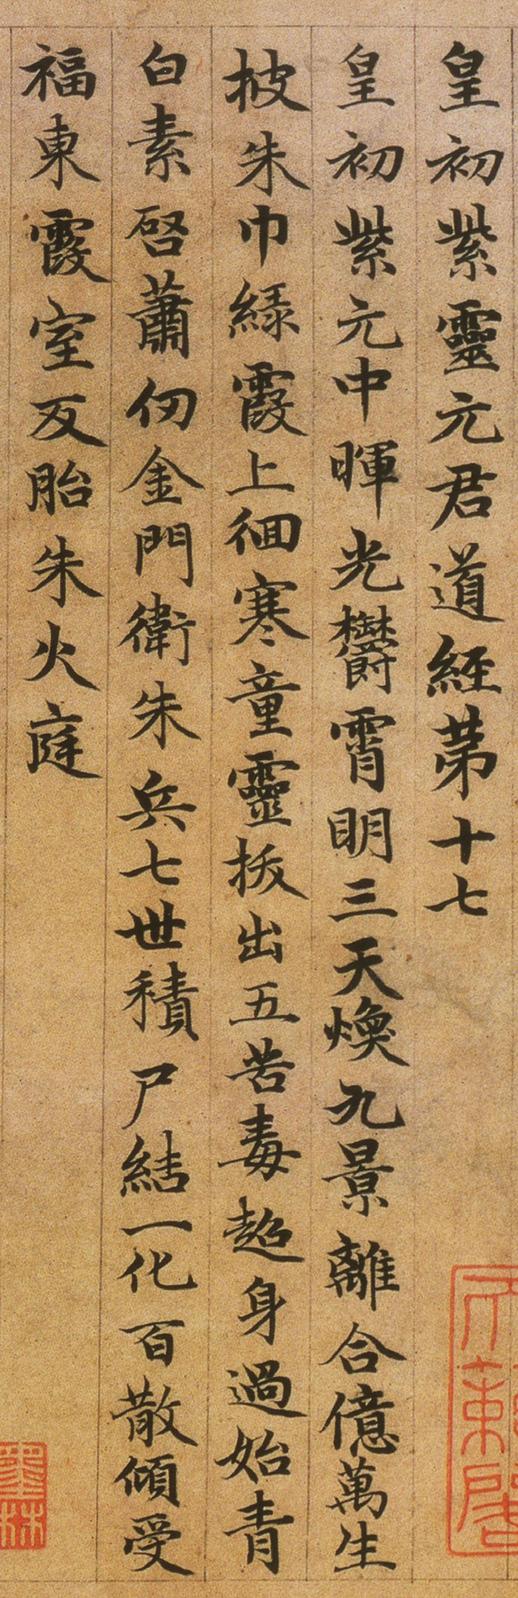 皇初紫靈元君道經第十七
皇初紫元中暉光欝霄明三天煥九景離合億萬生
披朱巾綠霞上徊寒童靈拔出五苦毒超身過始青
白素啓蕭仞金門衛朱兵七世積尸結一化百散傾受
福東霞室反胎朱火庭
墨林